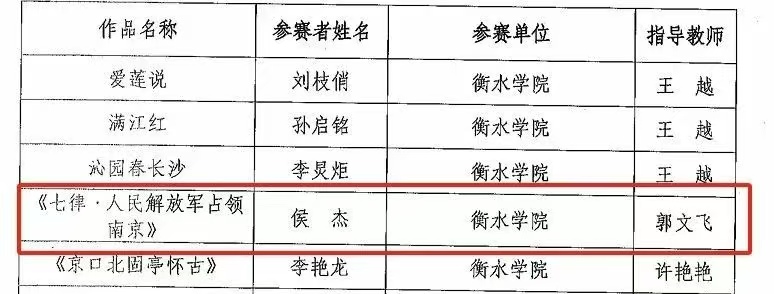 作品名称 参赛者姓名 参赛单位 指导教师
爱莲说 刘枝俏 衡水学院 王 越
满江红 孙启铭 衡水学院 王 越
沁园春长沙 李炅炬 衡水学院 王 越
《七律·人民解放军占领
南京》 侯 杰 衡水学院 郭文飞
《京口北固亭怀古》 李艳龙 衡水学院 许艳艳